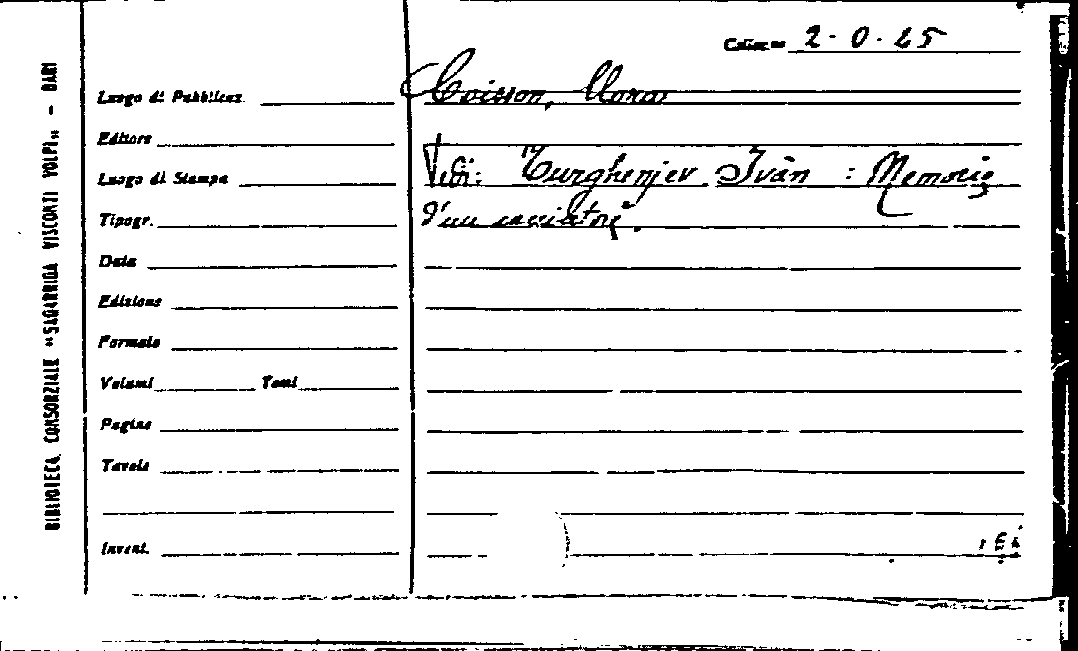 BIBLIOTECA CONSORZIALE "SAGARRIGA VISCONTI VOLPI" - BARI
Collocaz. 2-0-25
Luogo di Pubblicaz.
Coïsson, Clara
Editore
Luogo di Stampa
Vedi: Turghenjev Ivàn: Memorie
Tipogr.
d'un cacciatore.
Data
Edizione
Formato
Volumi Tomi
Pagine
Tavole
Invent.